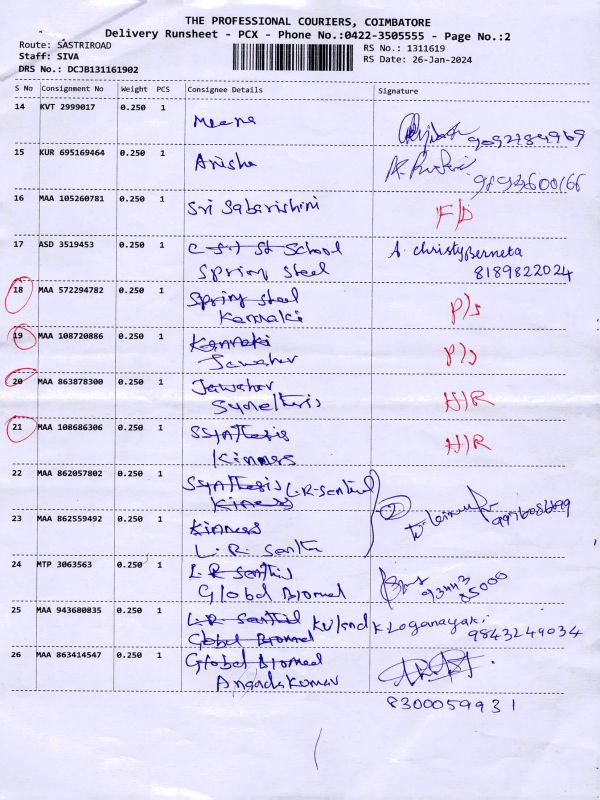 THE PROFESSIONAL COURIERS, COIMBATORE
Delivery Runsheet - PCX - Phone No.:0422-3505555 - Page No.:2
Route: SASTRIROAD
Staff: SIVA
DRS No.: DCJB131161902
RS No.: 1311619
RS Date: 26-Jan-2024
S No Consignment No Weight PCS Consignee Details Signature
14 KVT 2999017 0.250 1 Meena 9092784969
15 KUR 695169464 0.250 1 Anisha
16 MAA 105260781 0.250 1 Sri Sabarishini F/D
17 ASD 3519453 0.250 1 C S I St School A. Christy Berneta
Spring Steel 8189822024
18 MAA 572294782 0.250 1 Spring Steel P/S
Kannaki
19 MAA 108720886 0.250 1 Kannaki P/S
Jawahar
20 MAA 863878300 0.250 1 Jawahar H/R
21 MAA 108686306 0.250 1 SSynthesis H/R
Kinness
22 MAA 862057802 0.250 1 Synthesis L.R-Senthil
Kiness 2
23 MAA 862559492 0.250 1 Kinness
L.R.
24 MTP 3063563 0.250 1 L.R 93443
Global Biomed 25000
25 MAA 943680835 0.250 1 L.R K Loganayaki
Global Biomed 9843249034
26 MAA 863414547 0.250 1 Global Biomed
Angadakumar
8300059931